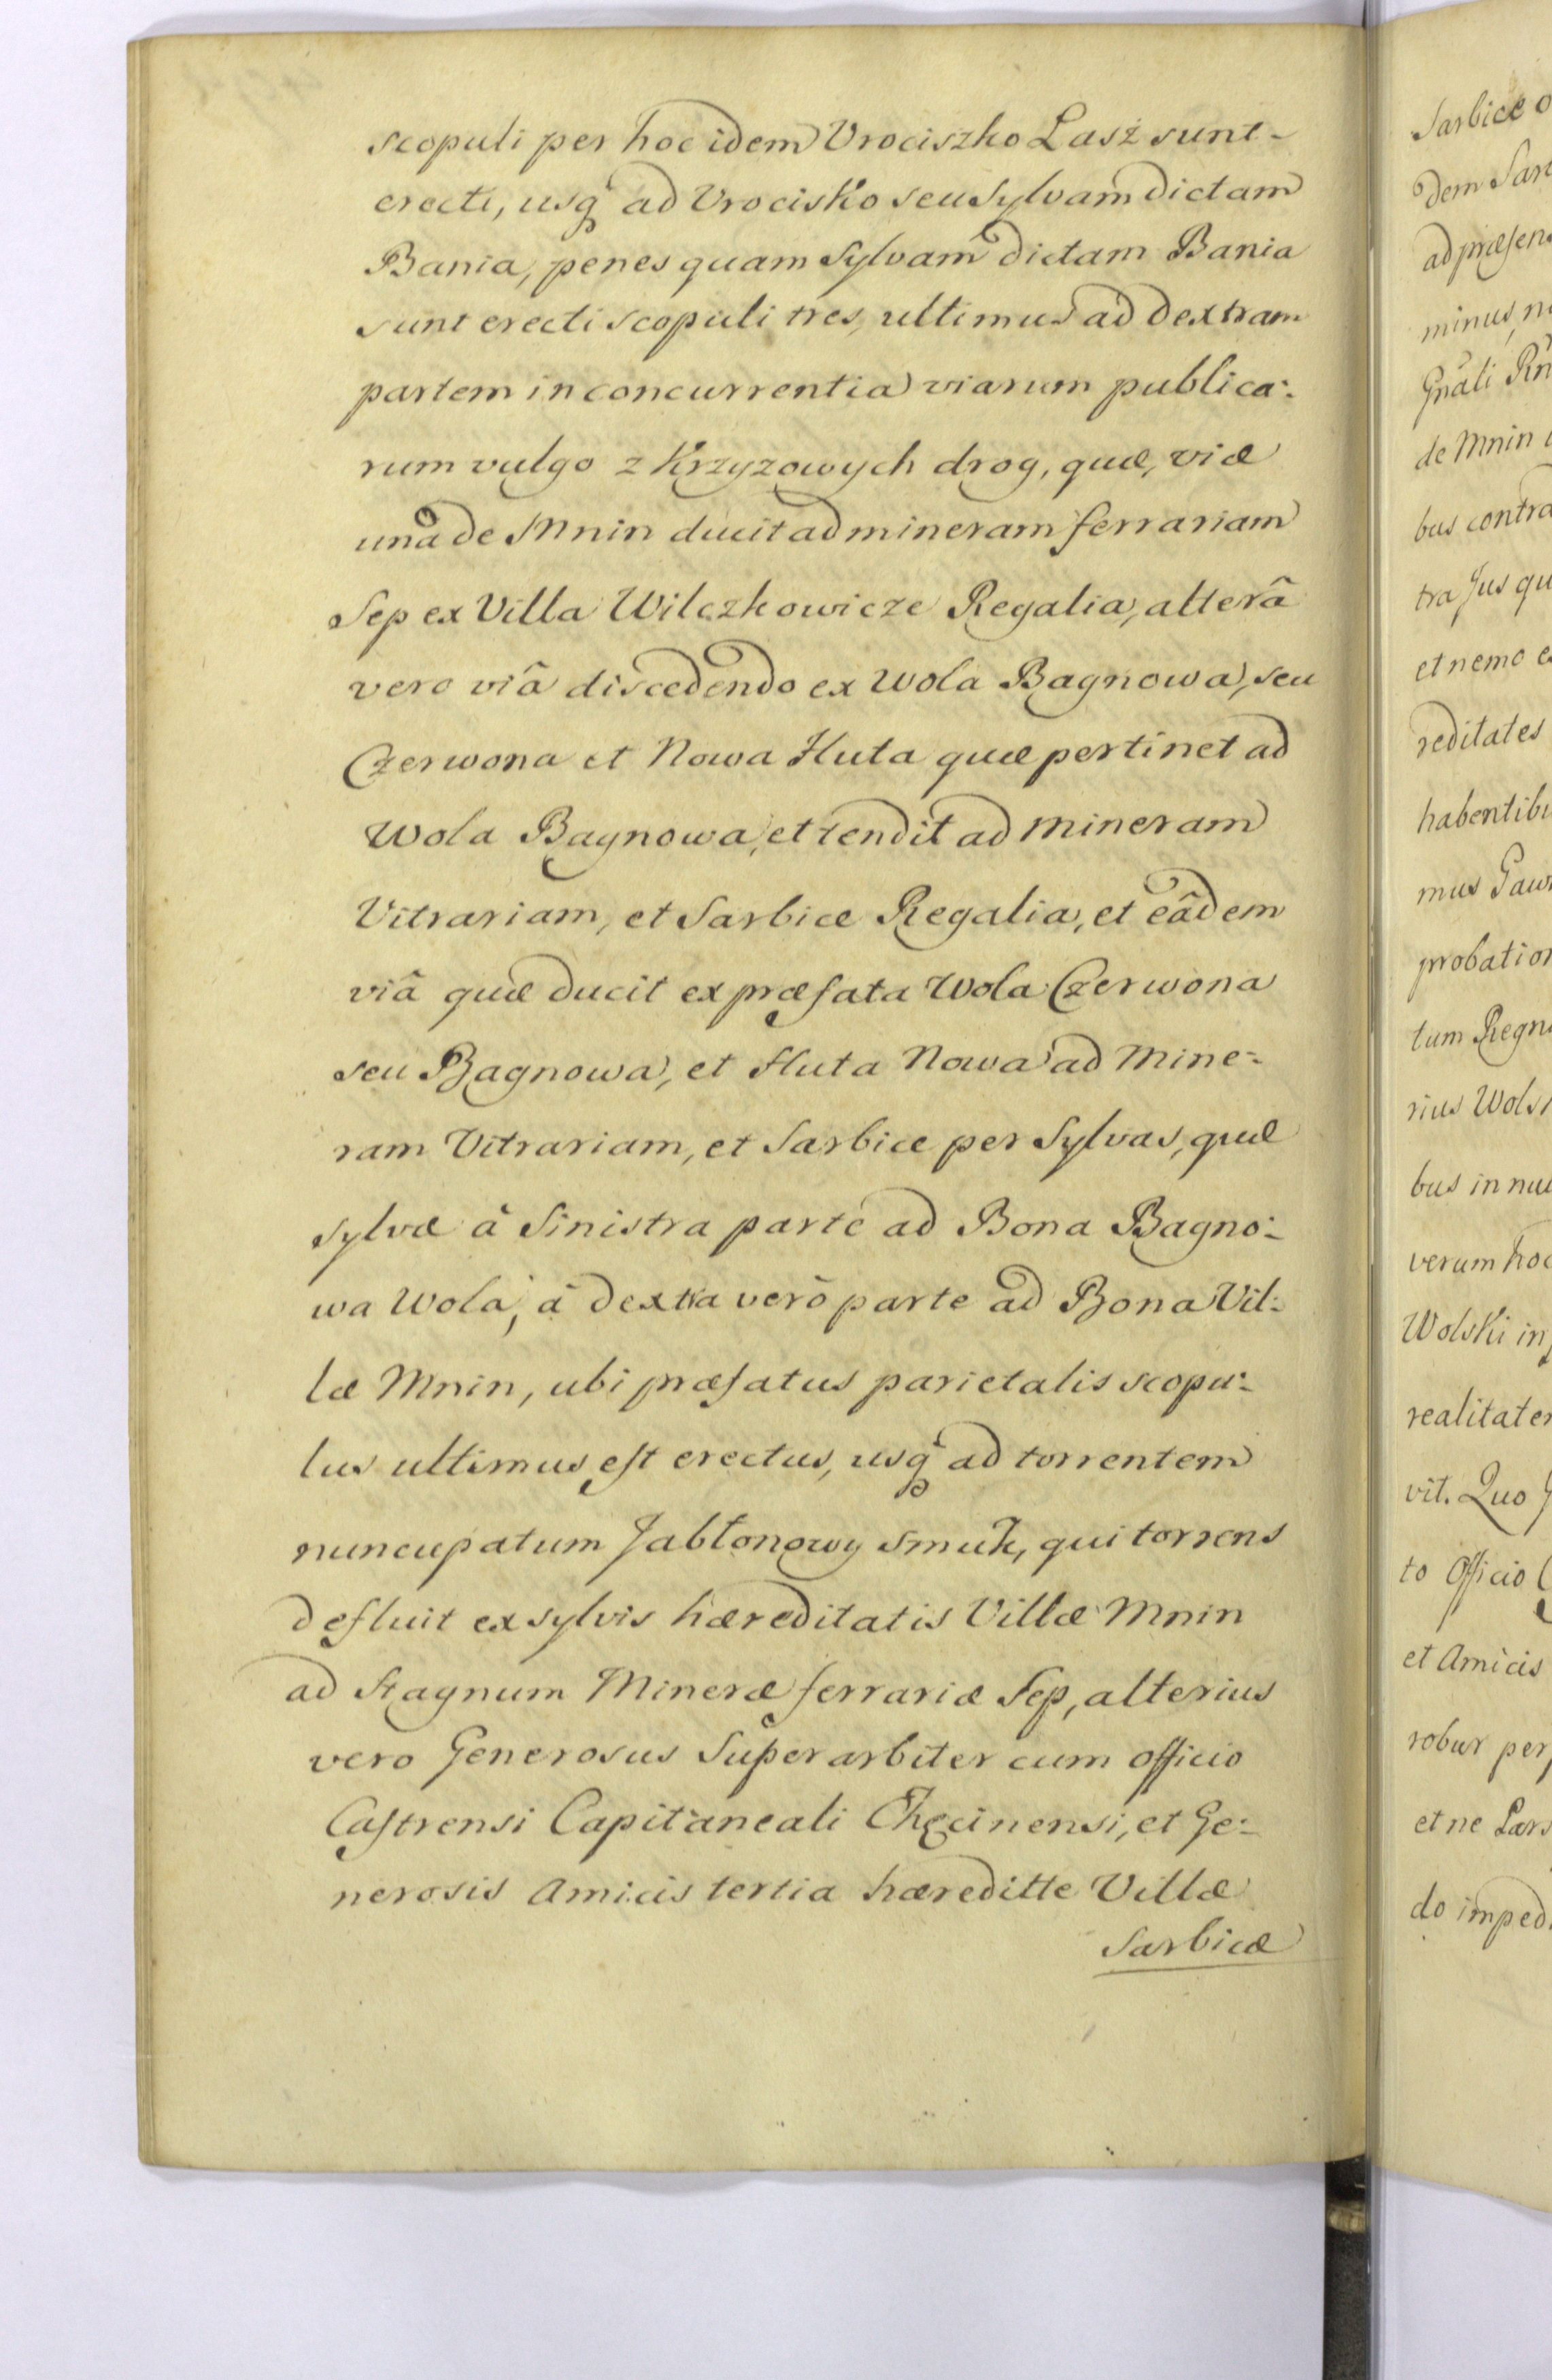 scopuli per hoc idem Vrociszko Lasż sunt-
erecti, usq ad Vrocisko seu Sylvam dictam
Bania, penes quam Sylvam dictam Bania
sunt erecti scopuli tres, ultimus ad dextram
partem in concurrentia viarum publica:
rum vulgo z Krzyzowych drog, quæ, viæ
unâ de Mnin ducit ad mineram ferrariam
Sep ex Villa Wilczkowicze Regalia, alterâ
vero viâ discedendo ex Wola Bagnowa, seu
Czerwona et Nowa Huta quæ pertinet ad
Wola Bagnowa, et tendit ad mineram
Vitrariam, et Sarbice Regalia, et eâdem
viâ quæ ducit ex præfata Wola Czerwona
seu Bagnowa, et Huta Nowa ad Mine-
ram Vitrariam, et Sarbice per Sylvas, quæ
sylvæ â Sinistra parte ad Bona Bagno:
wa Wola, â dextra verò parte ad Bona Vil:
læ Mnin, ubi præfatus parietalis scopu:
lus ultimus est erectus, usq ad torrentem
nuncupatum Jabłonowy smuk, qui torrens
defluit ex sylvis hæreditatis Villæ Mnin
ad Stagnum Mineræ ferrariæ Sep, alterius
vero Generosus Superarbiter cum officio
Castrensi Capitaneali Chęcinensi, et Ge:
nerosis Amicis tertia hæreditte Villæ
Sarbicæ
Sarbice
dem
ad præsen
minus
Gnali
de Mnin
bus contra
tra Jus qu
et nemo
reditates
habentibu
mus
probation
tum Regn
rius Wols
bus in
verum hoc
Wolski in
realitatem
vit. Quo
to Officio
et Amicis
robur per
et ne Pars
do imped